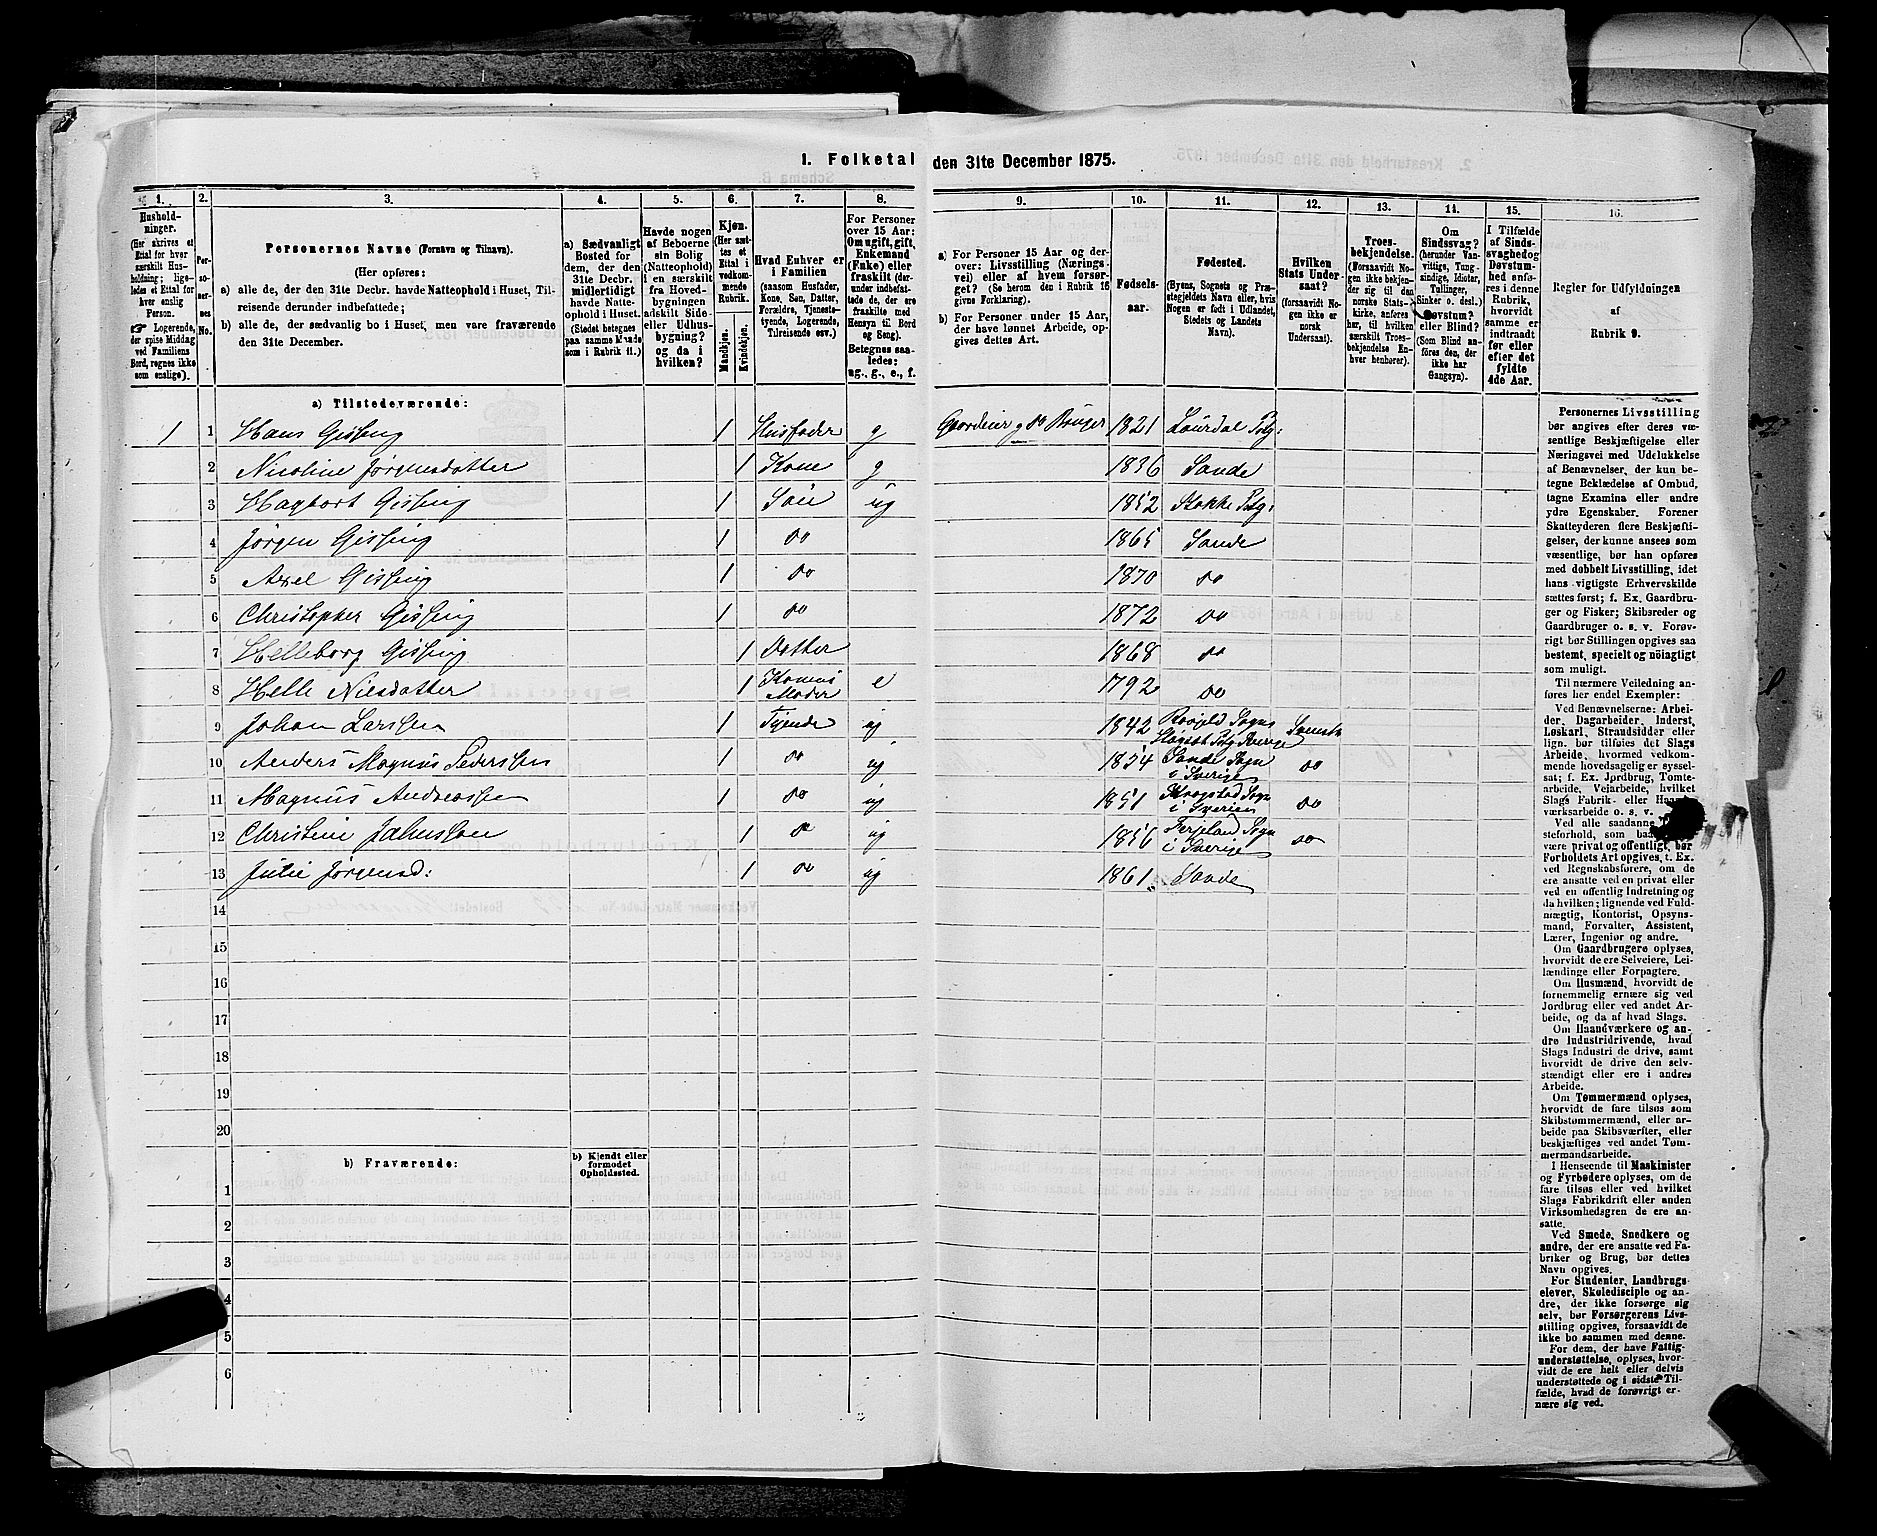 1. Folketal den 31te December 1875.
1. 2. 3. 4. 5. 6. 7. 8. 9. 10. 11. 12. 13. 14. 15. 16.
Hushold-
ninger.
(Her skrives et
Ettal for hver
særskilt Hus-
holdning; lige-
ledes et Ettal for
hver enslig
Person.
☞ Logerende,
der spise Middag
ved Familiens
Bord, regnes ikke
som enslige).
Per-
so-
ner-
nes
No.
Personernes Navne (Fornavn og Tilnavn).
(Her opføres:
a) alle de, der den 31te Decbr. havde Natteophold i Huset, Til-
reisende derunder indbefattede;
b) alle de, der sædvanlig bo i Huset, men vare fraværende
den 31te December.
a) Sædvanligt
Bosted for
dem, der den
31te Decbr.
midlertidigt
havde Natte-
ophold i Huset.
(Stedet betegnes
paa samme Maade
som i Rubrik 11.)
Havde nogen
af Beboerne
sin Bolig
(Natteophold)
i en særskilt
fra Hoved-
bygningen
adskilt Side-
eller Udhus-
bygning?
og da i
hvilken?
Kjøn.
(Her sæt-
tes et
Ettal i
vedkom-
mende
Rubrik.
Mandkjøn.
Kvindekjøn.
Hvad Enhver er
i Familien
(saasom Husfader,
Kone, Søn, Datter,
Forældre, Tjeneste-
tyende, Logerende,
Tilreisende osv.)
For Personer
over 15 Aar:
Om ugift, gift,
Enkemand
(Enke) eller
fraskilt (der-
under indbefat-
tede de, der ere
fraskilte med
Hensyn til Bord
og Seng).
Betegnes saa-
ledes:
ug., g., e., f.
a) For Personer 15 Aar og der-
over: Livsstilling (Nærings-
vei) eller af hvem forsør-
get? (Se herom den i Rubrik 16
givne Forklaring).
b) For Personer under 15 Aar,
der have lønnet Arbeide, op-
gives dettes Art.
Fødsels-
aar.
Fødested.
(Byens, Sognets og Præ-
stegjeldets Navn eller, hvis
Nogen er født i Udlandet,
Stedets og Landets
Navn).
Hvilken
Stats Under-
saat?
(forsaavidt No-
gen ikke er
norsk
Undersaat).
Troes-
bekjendelse.
(Forsaavidt No-
gen ikke bekjen-
der sig til den
norske Stats-
kirke, anføres
her, til hvilken
særskilt Troes-
bekjendelse En-
hver henhører).
Om
Sindssvag?
(herunder Van-
vittige, Tung-
sindige, Idioter,
Tullinger,
Sinker o. desl.)
Døvstum?
eller Blind?
(Som Blind an-
føres den, der
ikke har
Gangsyn).
I Tilfælde
af Sinds-
svaghed og
Døvstum-
hed anfø-
res i denne
Rubrik,
hvorvidt
samme er
indtraadt
før eller
efter det
fyldte
4de Aar.
Regler for Udfyldningen
af
Rubrik 9.
a) Tilstedeværende:
1 1 Hans Gissing 1 Husfader g Gaardeier og do Bruger 1821 Laurdal Prlg:
2 Nicoline Jørgensdatter 1 Kone g 1836 Sande
3 Hagbart Gissing 1 Søn ug 1852 Stokke Prlg:
4 Jørgen Gissing 1 do 1865 Sande
5 Axel Gissing 1 do 1870 do
6 Christopher Gissing 1 do 1872 do
7 Helleborg Gissing 1 Datter 1868 do
8 Helle Nilsdatter 1 Konens Moder e 1792 do
9 Johan Larssen 1 Tyende ug 1842 Sogns Prlg Sverige Svensk
10 Anders Magnus Pederssen 1 do ug 1854 Sande Sogn i Sverige do
11 Magnus Andreassen 1 do ug 1851 Sogn i Sverige do
12 Christine Johnsson 1 do ug 1856 Sogn i Sverige do
13 Julie Jørgensd: 1 do ug 1861 Sande
14
15
16
17
18
19
20
b) Fraværende:
b) Kjendt eller
formodet
Opholdssted.
1
2
3
4
5
6
Personernes Livsstilling
bør angives efter deres væ-
sentlige Beskjæftigelse eller
Næringsvei med Udelukkelse
af Benævnelser, der kun be-
tegne Beklædelse af Ombud,
tagne Examina eller andre
ydre Egenskaber. Forener
Skatteyderen flere Beskjæfti-
gelser, der kunne ansees som
væsentlige, bør han opføres
med dobbelt Livsstilling, idet
hans vigtigste Erhvervskilde
sættes først; f. Ex. Gaardbru-
ger og Fisker; Skibsreder og
Gaardbruger o. s. v. Forøv-
rigt bør Stillingen opgives saa
bestemt, specielt og nöiagtigt
som muligt.
Til nærmere Veiledning an-
føres her endel Exempler:
Ved Benævnelserne: Arbei-
der, Dagarbeider, Inderst,
Løskarl, Strandsidder eller
lign. bør tilføies det Slags
Arbeide, hvormed vedkom-
mende hovedsagelig er syssel-
sat; f. Ex. Jordbrug, Tomte-
arbeide, Veiarbeide, hvilket
Slags Fabrik- eller Haand-
værksarbeide o. s. v.
Ved alle saadanne
steforhold, som baade
være privat og offentligt, bør
Forholdets Art opgives, t. Ex.
ved Regnskabsførere, om de
ere ansatte ved en privat eller
ved en offentlig Indretning og
da hvilken; lignende ved Fuld-
mægtig, Kontorist, Opsyns-
mand, Forvalter, Assistent,
Lærer, Ingeniør og andre.
Om Gaardbrugere oplyses,
hvorvidt de ere Selveiere, Lei-
lændinge eller Forpagtere.
Om Husmænd, hvorvidt de
fornemmelig ernære sig ved
Jordbrug eller ved andet Ar-
beide, og da af hvad Slags.
Om Haandværkere og an-
dre Industridrivende, hvad
Slags Industri de drive, samt
hvorvidt de drive den selv-
stændigt eller ere i andres
Arbeide.
Om Tømmermænd oplyses,
hvorvidt de fare tilsøs som
Skibstømmermænd, eller ar-
beide paa Skibsværfter, eller
beskjæftiges ved andet Tøm-
mermandsarbeide.
I Henseende til Maskinister
og Fyrbødere oplyses, om de
fare tilsøs eller ved hvilket
Slags Fabrikdrift eller anden
Virksomhedsgren de ere an-
satte.
Ved Smede, Snedkere og
andre, der ere ansatte ved Fa-
briker og Brug, bør dettes
Navn opgives.
For Studenter, Landbrugs-
elever, Skoledisciple og an-
dre, der ikke forsørge sig
selv, bør Forsørgerens Livs-
stilling opgives, forsaavidt de
ikke bo sammen med denne.
For dem, der have Fattig-
understøttelse, oplyses, hvor-
vidt de ere helt eller delvis
understøttede og i sidste Til-
fælde, hvad de forøvrigt er-
nære sig ved.